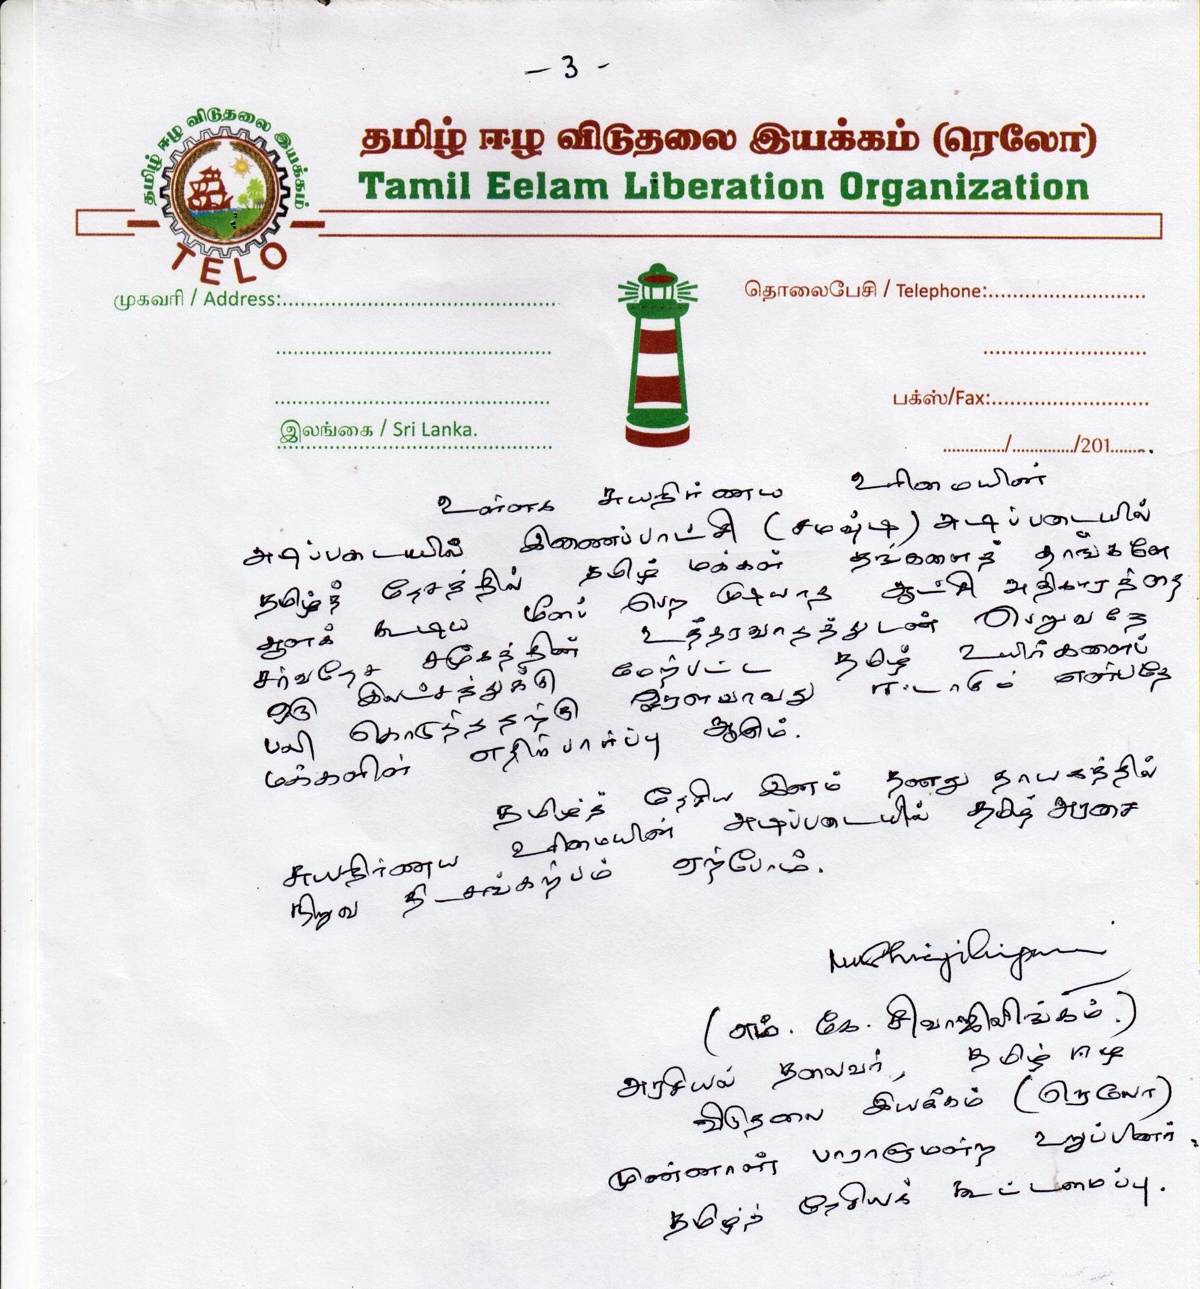 - 3 -
தமிழ் ஈழ விடுதலை இயக்கம்
TELO
தமிழ் ஈழ விடுதலை இயக்கம் (ரெலோ)
Tamil Eelam Liberation Organization
முகவரி / Address:
தொலைபேசி / Telephone:
பக்ஸ்/Fax:
இலங்கை / Sri Lanka.
............../............../201........
உள்ளக சுயநிர்ணய உரிமையின்
அடிப்படையில் இணைப்பாட்சி (சமஷ்டி) அடிப்படையில்
தமிழ்த் தேசத்தில் தமிழ் மக்கள் தங்களைத் தாங்களே
ஆளக் கூடிய மீளப் பெற முடியாத ஆட்சி அதிகாரத்தை
சர்வதேச சமூகத்தின் உத்தரவாதத்துடன் பெறுவதே
ஒரு இலட்சத்துக்கு மேற்பட்ட தமிழ் உயிர்களைப்
பலி கொடுத்ததற்கு ஓரளவாவது ஈடாகும் என்பதே
மக்களின் எதிர்பார்ப்பு ஆகும்.
தமிழ்த் தேசிய இனம் தனது தாயகத்தில்
சுயநிர்ணய உரிமையின் அடிப்படையில் தமிழ் அரசை
நிறுவ திடசங்கற்பம் ஏற்போம்.
(எம். கே. சிவாஜிலிங்கம்.)
அரசியல் தலைவர், தமிழ் ஈழ
விடுதலை இயக்கம் (ரெலோ)
முன்னாள் பாராளுமன்ற உறுப்பினர்.
தமிழ்த் தேசியக் கூட்டமைப்பு.